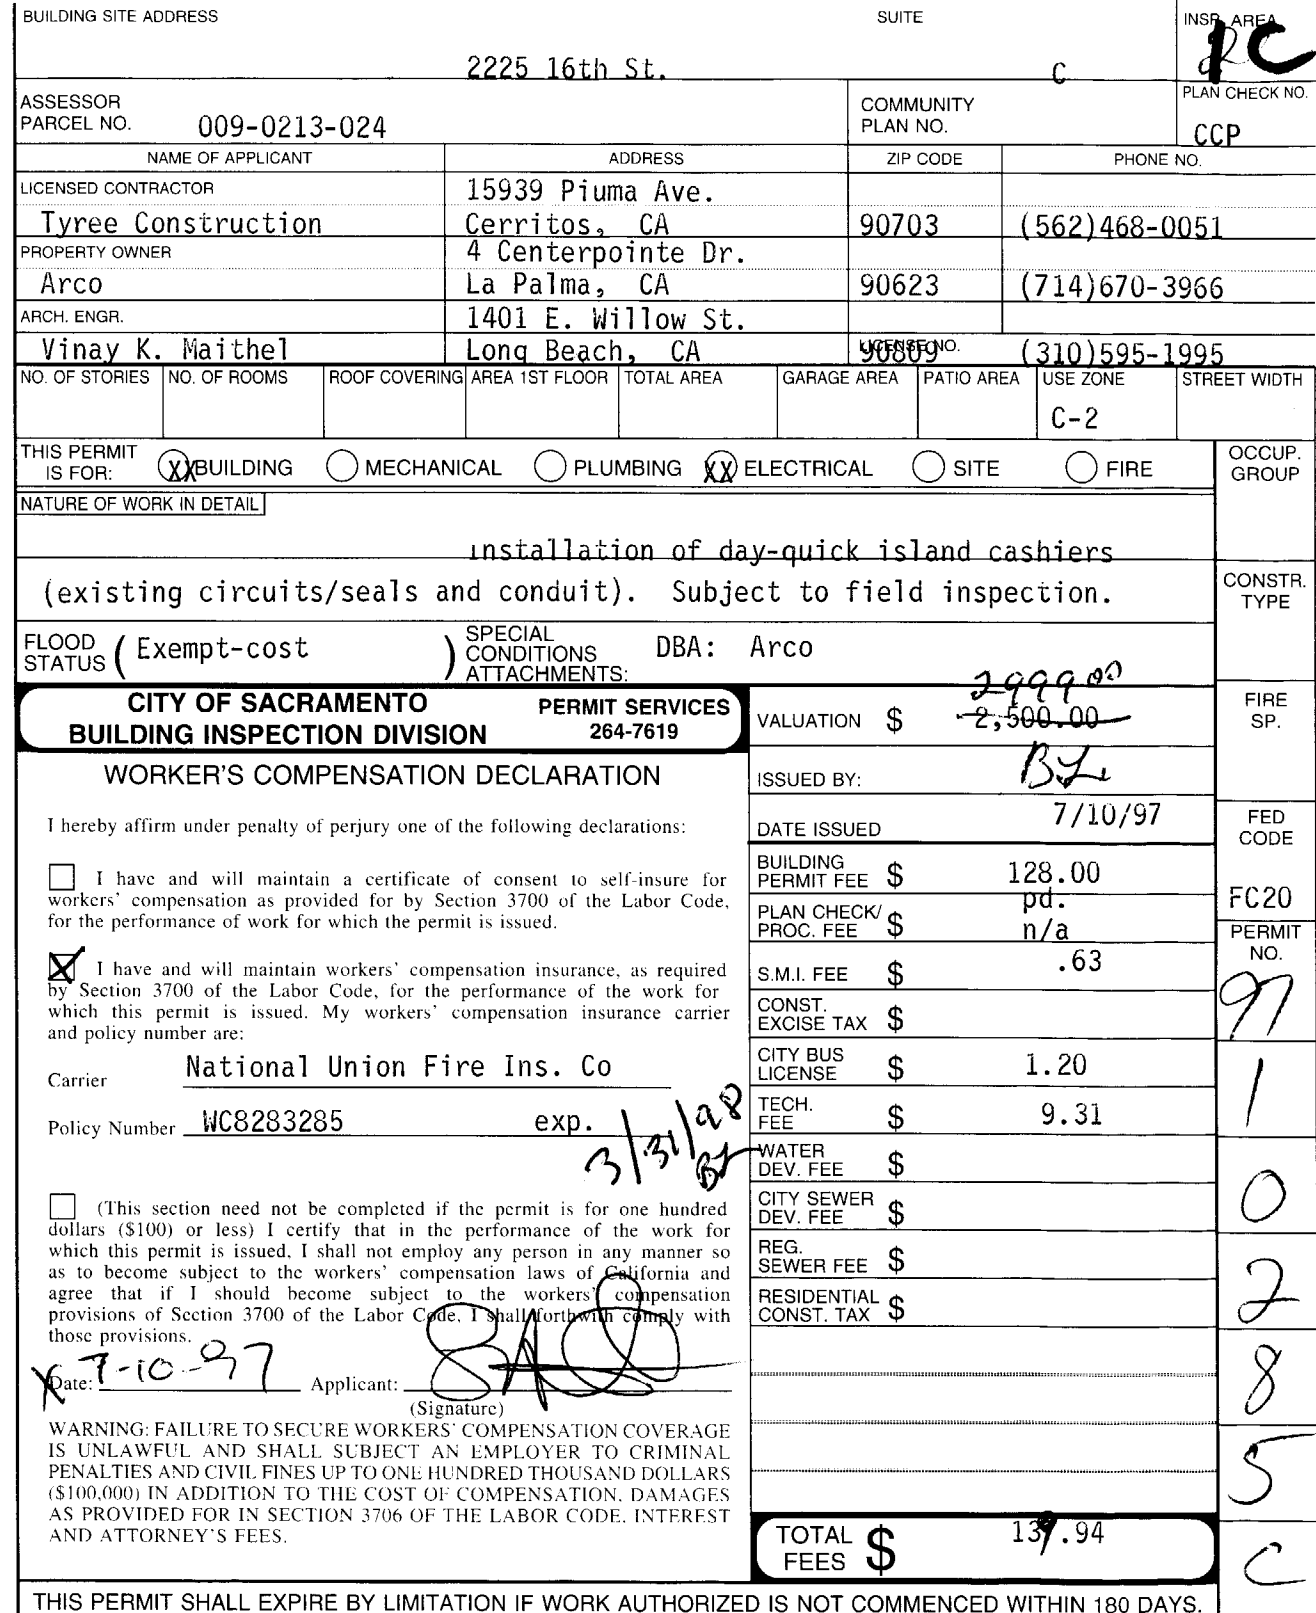 BUILDING SITE ADDRESS SUITE INSP. AREA
2225 16th St. C
ASSESSOR
PARCEL NO. 009-0213-024
COMMUNITY
PLAN NO.
PLAN CHECK NO.
CCP
NAME OF APPLICANT ADDRESS ZIP CODE PHONE NO.
LICENSED CONTRACTOR 15939 Piuma Ave.
Tyree Construction Cerritos, CA 90703 (562)468-0051
PROPERTY OWNER 4 Centerpointe Dr.
Arco La Palma, CA 90623 (714)670-3966
ARCH. ENGR. 1401 E. Willow St.
LICENSE NO.
Vinay K. Maithel Long Beach, CA 90809 (310)595-1995
NO. OF STORIES NO. OF ROOMS ROOF COVERING AREA 1ST FLOOR TOTAL AREA GARAGE AREA PATIO AREA USE ZONE STREET WIDTH
C-2
THIS PERMIT
IS FOR: XX BUILDING MECHANICAL PLUMBING XX ELECTRICAL SITE FIRE
OCCUP.
GROUP
NATURE OF WORK IN DETAIL
installation of day-quick island cashiers
(existing circuits/seals and conduit). Subject to field inspection.
CONSTR.
TYPE
FLOOD
STATUS ( Exempt-cost )
SPECIAL
CONDITIONS
ATTACHMENTS:
DBA: Arco
CITY OF SACRAMENTO
BUILDING INSPECTION DIVISION
PERMIT SERVICES
264-7619
WORKER'S COMPENSATION DECLARATION
I hereby affirm under penalty of perjury one of the following declarations:
I have and will maintain a certificate of consent to self-insure for
workers' compensation as provided for by Section 3700 of the Labor Code,
for the performance of work for which the permit is issued.
X I have and will maintain workers' compensation insurance, as required
by Section 3700 of the Labor Code, for the performance of the work for
which this permit is issued. My workers' compensation insurance carrier
and policy number are:
Carrier National Union Fire Ins. Co
Policy Number WC8283285 exp.
3/31/98
BL
(This section need not be completed if the permit is for one hundred
dollars ($100) or less) I certify that in the performance of the work for
which this permit is issued, I shall not employ any person in any manner so
as to become subject to the workers' compensation laws of California and
agree that if I should become subject to the workers' compensation
provisions of Section 3700 of the Labor Code, I shall forthwith comply with
those provisions.
X Date: 7-10-97 Applicant:
(Signature)
WARNING: FAILURE TO SECURE WORKERS' COMPENSATION COVERAGE
IS UNLAWFUL AND SHALL SUBJECT AN EMPLOYER TO CRIMINAL
PENALTIES AND CIVIL FINES UP TO ONE HUNDRED THOUSAND DOLLARS
($100,000) IN ADDITION TO THE COST OF COMPENSATION, DAMAGES
AS PROVIDED FOR IN SECTION 3706 OF THE LABOR CODE, INTEREST
AND ATTORNEY'S FEES.
2999 00
VALUATION $ 2,500.00
ISSUED BY: BL
DATE ISSUED 7/10/97
BUILDING
PERMIT FEE $ 128.00
pd.
PLAN CHECK/
PROC. FEE $ n/a
S.M.I. FEE $ .63
CONST.
EXCISE TAX $
CITY BUS
LICENSE $ 1.20
TECH.
FEE $ 9.31
WATER
DEV. FEE $
CITY SEWER
DEV. FEE $
REG.
SEWER FEE $
RESIDENTIAL
CONST. TAX $
TOTAL
FEES $ 139.94
FIRE
SP.
FED
CODE
FC20
PERMIT
NO.
97
1
0
2
8
5
C
THIS PERMIT SHALL EXPIRE BY LIMITATION IF WORK AUTHORIZED IS NOT COMMENCED WITHIN 180 DAYS.